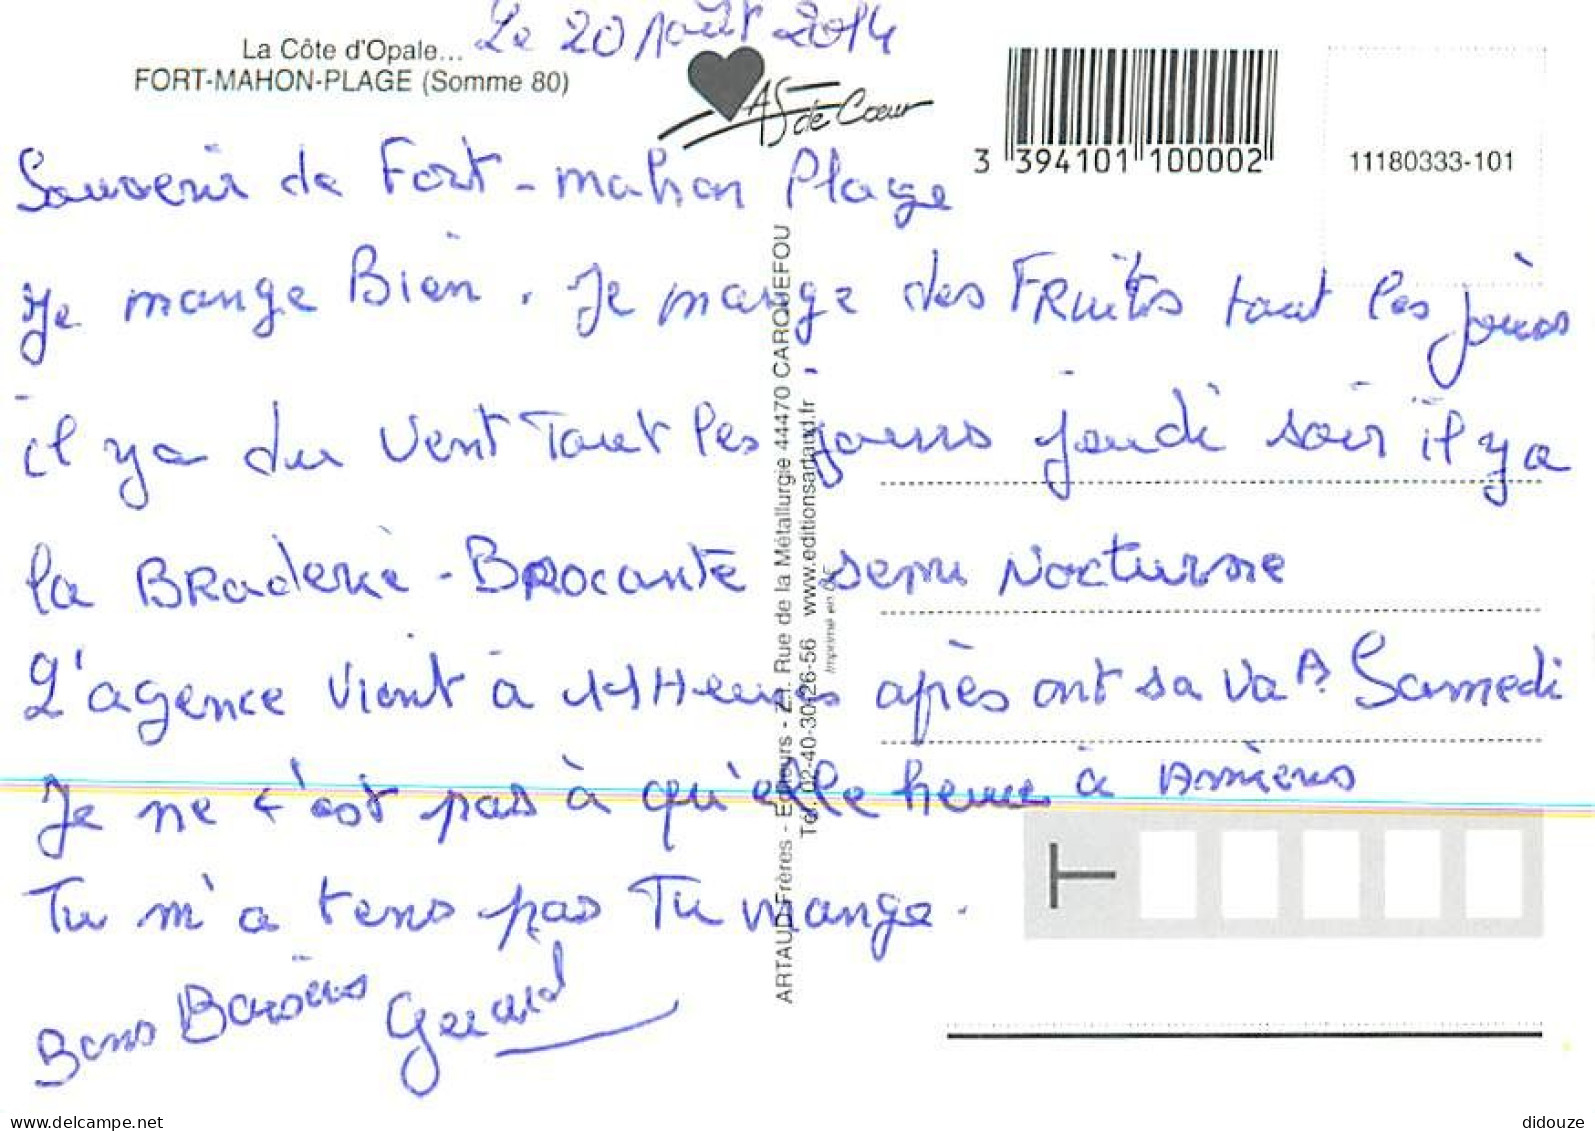 Le 20 Août 2014
La Côte d'Opale...
FORT-MAHON-PLAGE (Somme 80)
AS de Cœur
3 394101 100002
11180333-101
Souvenir de Fort-mahon Plage
Je mange Bien. Je mange des FRuits tout les jours
il y a du vent Tout les jours jeudi soir il y a
la BRaderie - BRocante semi Nocturne
L'agence vient à 11 Heures après ont sa va A Samedi
Je ne c'est pas à qu'elle heure à Amiens
Tu m'a tens pas Tu mange.
Bons Baisers Gérard
ARTAUD Frères - Editeurs - Z.I. Rue de la Métallurgie 44470 CARQUEFOU
Tél. 02-40-30-26-56 www.editionsartaud.fr
Imprimé en CEE
delcampe.net
didouze